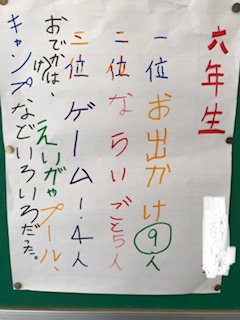 六年生
一位 お出かけ 9人
二位 ならいごと5人
三位 ゲーム・4人
おでかけは、えいがやプール、
キャンプなどいろいろだった。